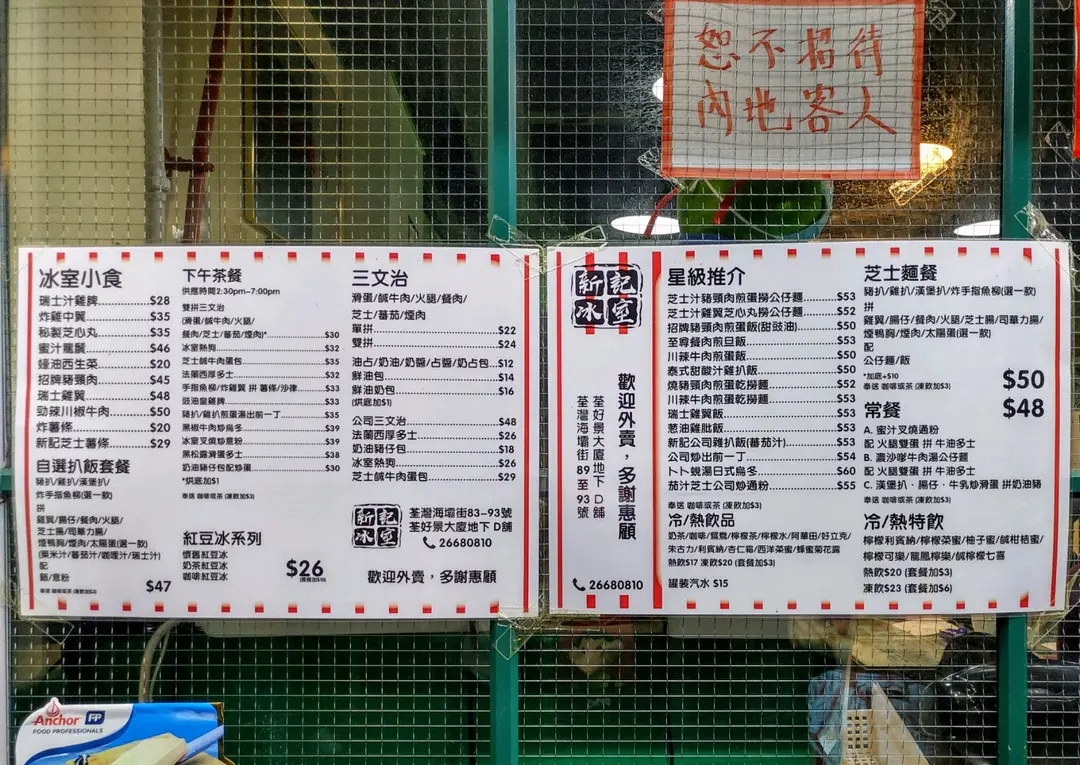 恕不招待
內地客人
冰室小食
瑞士汁雞脾 $28
炸雞中翼 $35
秘製芝心丸 $35
蜜汁龍鬚 $46
蠔油西生菜 $20
招牌豬頸肉 $45
瑞士雞翼 $48
勁辣川椒牛肉 $50
炸薯條 $20
新記芝士薯條 $29
自選扒飯套餐
豬扒/雞扒/漢堡扒/
炸手指魚柳(選一款)
拼
雞翼/腸仔/餐肉/火腿/
芝士腸/司華力腸/
煙鴨胸/煙肉/太陽蛋(選一款)
(粟米汁/蕃茄汁/咖喱汁/瑞士汁)
配
飯/意粉
奉送 咖啡或茶 (凍飲加$3)
$47
下午茶餐
供應時間2:30pm-7:00pm
雙拼三文治
(滑蛋/鹹牛肉/火腿/
餐肉/芝士/蕃茄/煙肉)* $30
冰室熱狗 $32
芝士鹹牛肉蛋包 $35
法蘭西厚多士 $32
手指魚柳/炸雞翼 拼 薯條/沙律 $33
豉油皇雞脾 $33
豬扒/雞扒煎蛋湯出前一丁 $35
黑椒牛肉炒烏冬 $39
冰室叉燒炒意粉 $39
黑松露滑蛋多士 $38
奶油豬仔包配炒蛋 $30
*烘底加$1
奉送 咖啡或茶 (凍飲加$3)
紅豆冰系列
懷舊紅豆冰
奶茶紅豆冰
咖啡紅豆冰
$26
(套餐加$10)
三文治
滑蛋/鹹牛肉/火腿/餐肉/
芝士/蕃茄/煙肉
單拼 $22
雙拼 $24
油占/奶油/奶醬/占醬/奶占包 $12
鮮油包 $14
鮮油奶包 $16
(烘底加$1)
公司三文治 $48
法蘭西厚多士 $26
奶油豬仔包 $18
冰室熱狗 $26
芝士鹹牛肉蛋包 $29
新記
冰室
荃灣海壩街83-93號
荃好景大廈地下 D舖
26680810
歡迎外賣，多謝惠顧
新記
冰室
歡迎外賣，多謝惠顧
荃好景大廈地下 D 舖
荃灣海壩街 89 至 93 號
26680810
星級推介
芝士汁豬頸肉煎蛋撈公仔麵 $53
芝士汁雞翼芝心丸撈公仔麵 $52
招牌豬頸肉煎蛋飯(甜豉油) $50
至尊餐肉煎旦飯 $53
川辣牛肉煎蛋飯 $50
泰式甜酸汁雞扒飯 $50
燒豬頸肉煎蛋乾撈麵 $52
川辣牛肉煎蛋乾撈麵 $53
瑞士雞翼飯 $53
葱油雞扒飯 $53
新記公司雜扒飯(蕃茄汁) $53
公司炒出前一丁 $54
卜卜蜆湯日式烏冬 $60
茄汁芝士公司炒通粉 $55
奉送 咖啡或茶 (凍飲加$3)
冷/熱飲品
奶茶/咖啡/鴛鴦/檸檬茶/檸檬水/阿華田/好立克/
朱古力/利賓納/杏仁霜/西洋菜蜜/蜂蜜菊花露
熱飲$17 凍飲$20 (套餐加$3)
罐裝汽水 $15
芝士麵餐
豬扒/雞扒/漢堡扒/炸手指魚柳(選一款)
拼
雞翼/腸仔/餐肉/火腿/芝士腸/司華力腸/
煙鴨胸/煙肉/太陽蛋(選一款)
配
公仔麵/飯
*加底+$10
奉送 咖啡或茶 (凍飲加$3)
$50
常餐
$48
A. 蜜汁叉燒通粉
配 火腿雙蛋 拼 牛油多士
B. 濃沙嗲牛肉湯公仔麵
配 火腿雙蛋 拼 牛油多士
C. 漢堡扒．腸仔．牛乳炒滑蛋 拼奶油豬
奉送 咖啡或茶 (凍飲加$3)
冷/熱特飲
檸檬利賓納/檸檬菜蜜/柚子蜜/鹹柑桔蜜/
檸檬可樂/龍鳳檸樂/鹹檸檬七喜
熱飲$20 (套餐加$3)
凍飲$23 (套餐加$6)
Anchor
FP
FOOD PROFESSIONALS